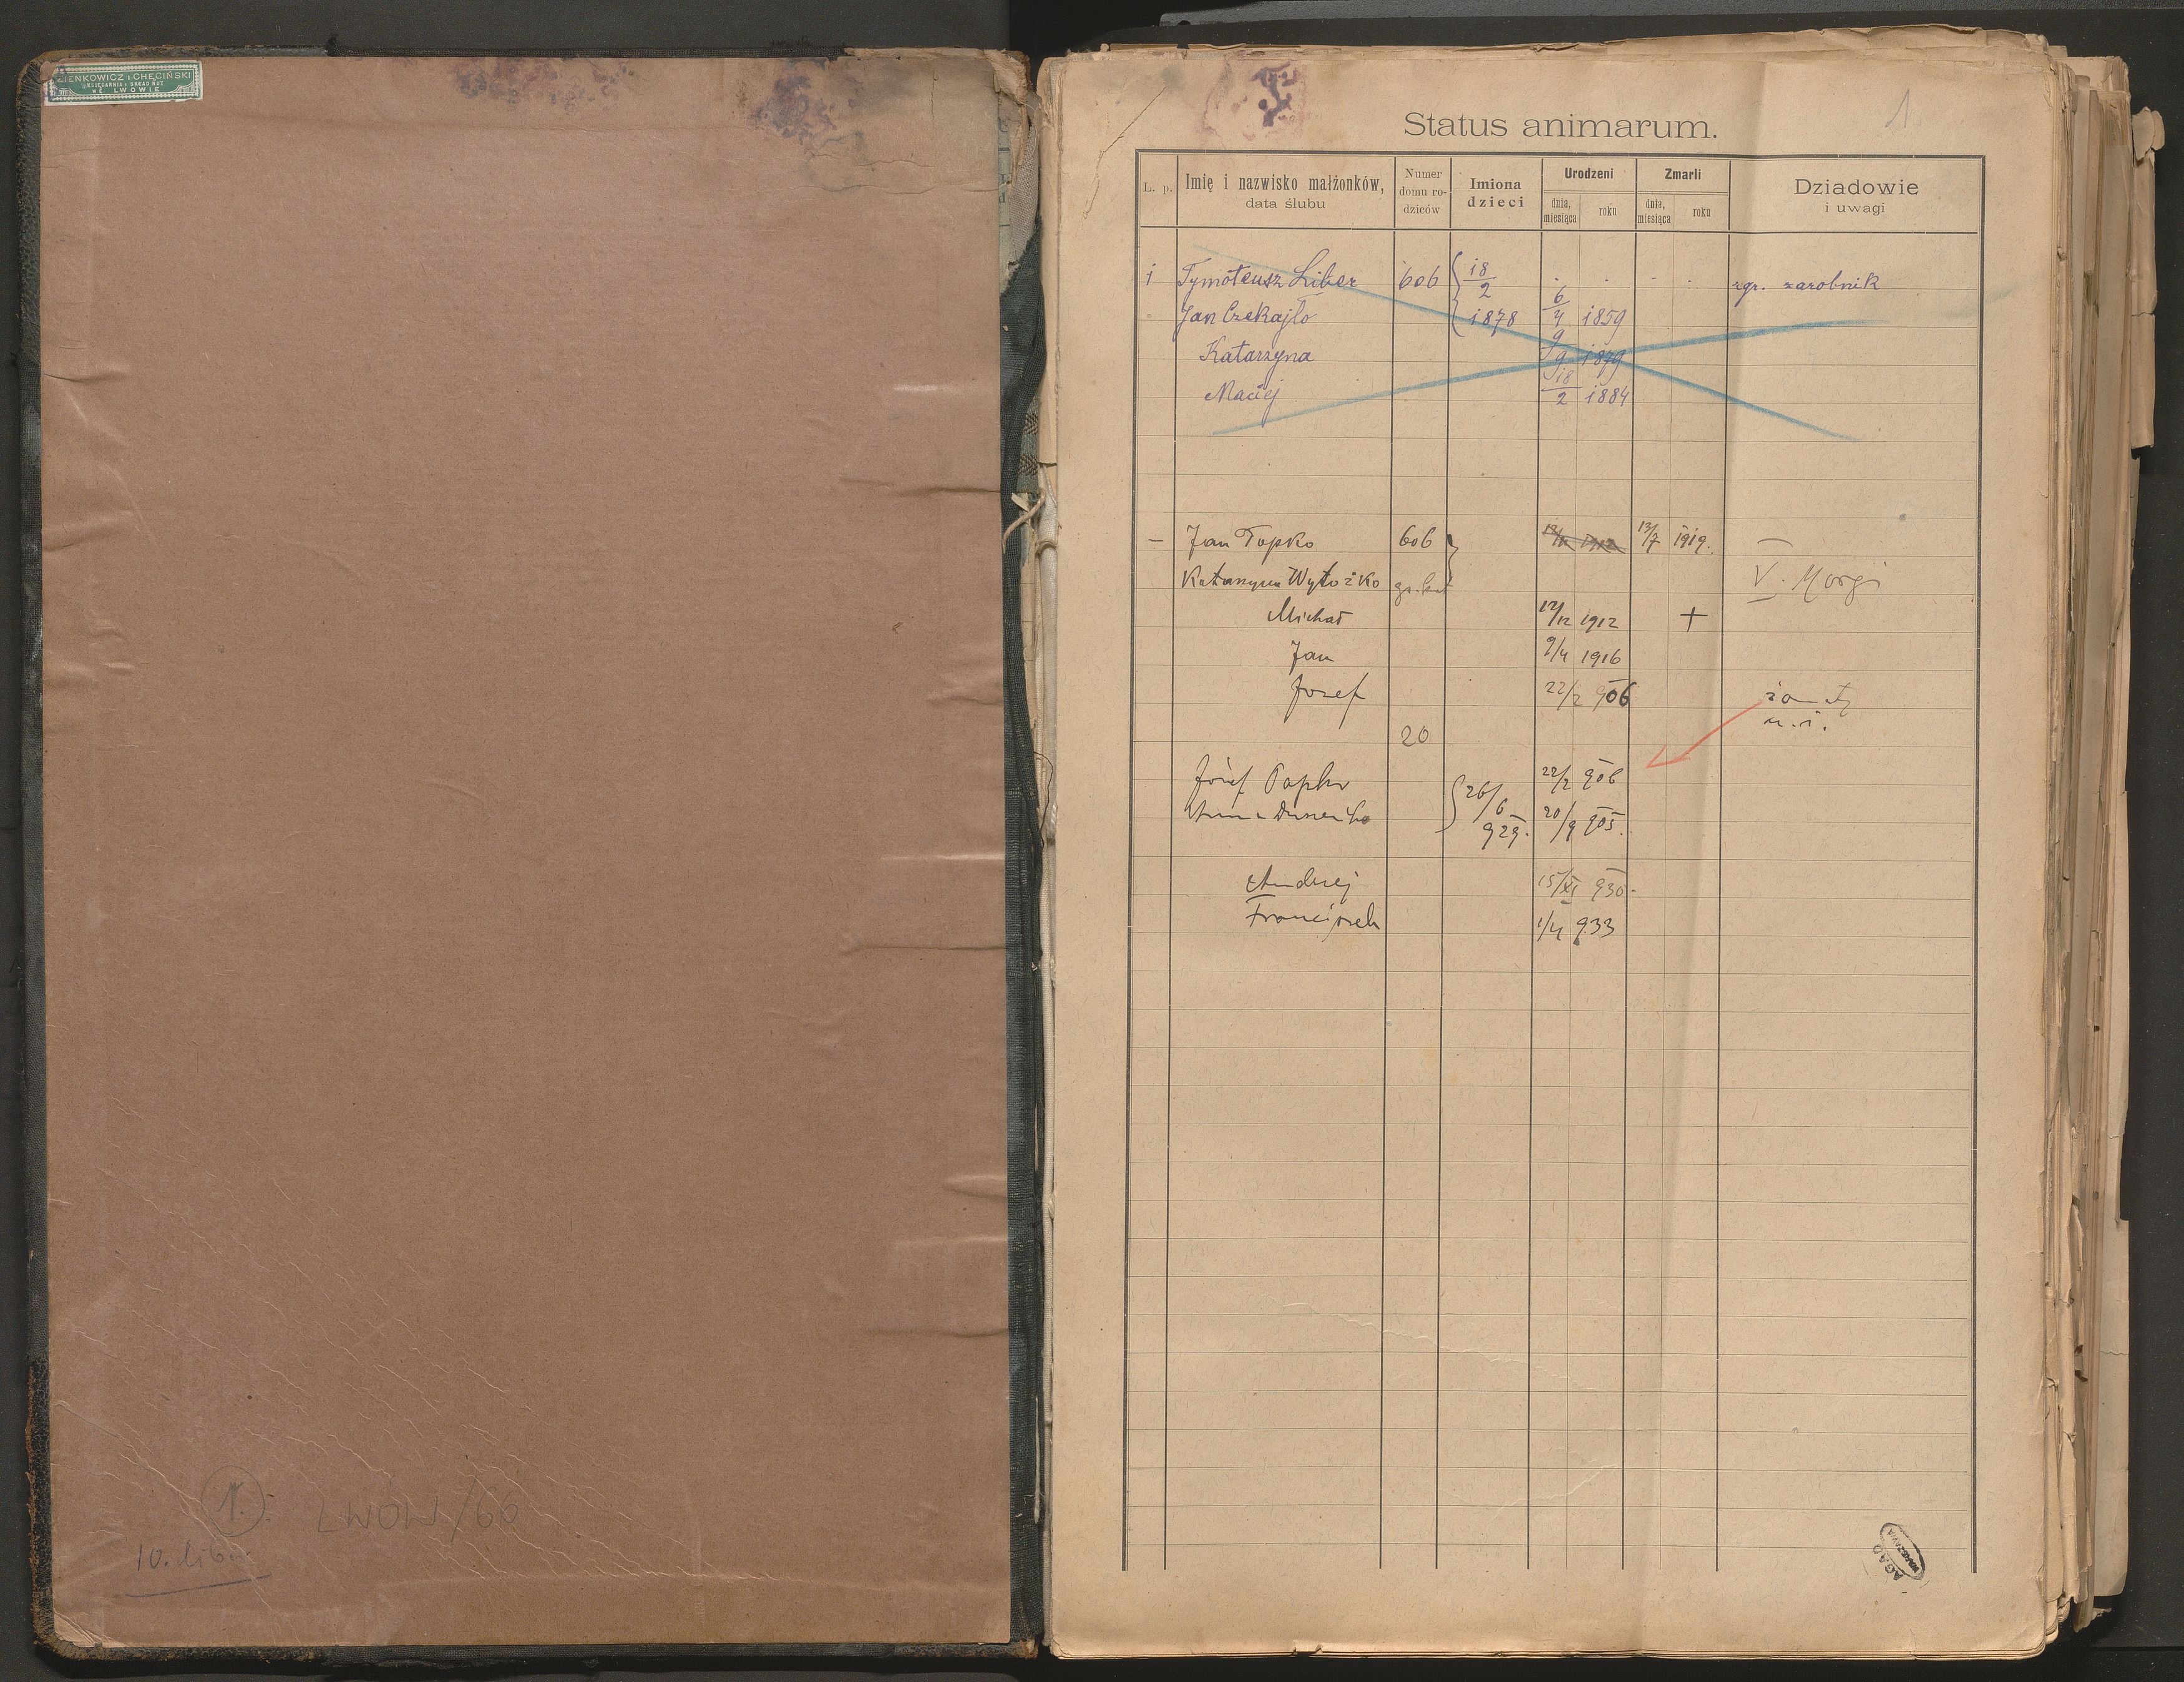 ZIENKOWICZ i CHĘCIŃSKI
KSIĘGARNIA i SKŁAD NUT
WE LWOWIE
1.
LWÓW/66
10.
1
Status animarum.
L. p.
Imię i nazwisko małżonków,
data ślubu
Numer
domu ro-
dziców
Imiona
dzieci
Urodzeni
dnia,
miesiąca
roku
Zmarli
dnia,
miesiąca
roku
Dziadowie
i uwagi
1 Tymoteusz Liber 606 18/2 . . . . zarobnik
Jan Czekajło 1878 6/4 1859
Katarzyna 9/9 1879
Maciej 18/2 1884
– Jan Topko 606 1912 13/7 1919. –
Katarzyna Wytożko gr. kat V. Morgi
Michał 12/12 1912 +
Jan 9/4 1916
Jozef 22/2 906
20
Józef Topko 22/2 906
Anna 26/6 929. 20/9 905.
Andrzej 15/XI 930
Franciszek 1/4 933
AGAD
WARSZAWA